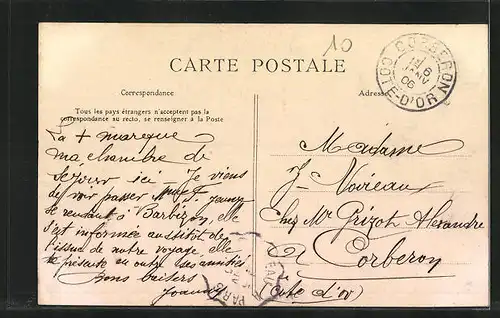 10
CORBERON
6
JANV
06
COTE-D'OR
CARTE POSTALE
Correspondance
Adresse
Tous les pays étrangers n'acceptent pas la
correspondance au recto, se renseigner à la Poste
La + marque
ma chambre de
séjour ici. Je viens
de voir passer
se rendant à Barbizon, elle
s'est informée aussitôt de
l'issue de notre voyage elle
te présente en outre ses amitiés
bons baisers
Madame
J. Voireau
Chez Mr Grizot Alexandre
à
Corberon
(Côte d'or)
PARIS